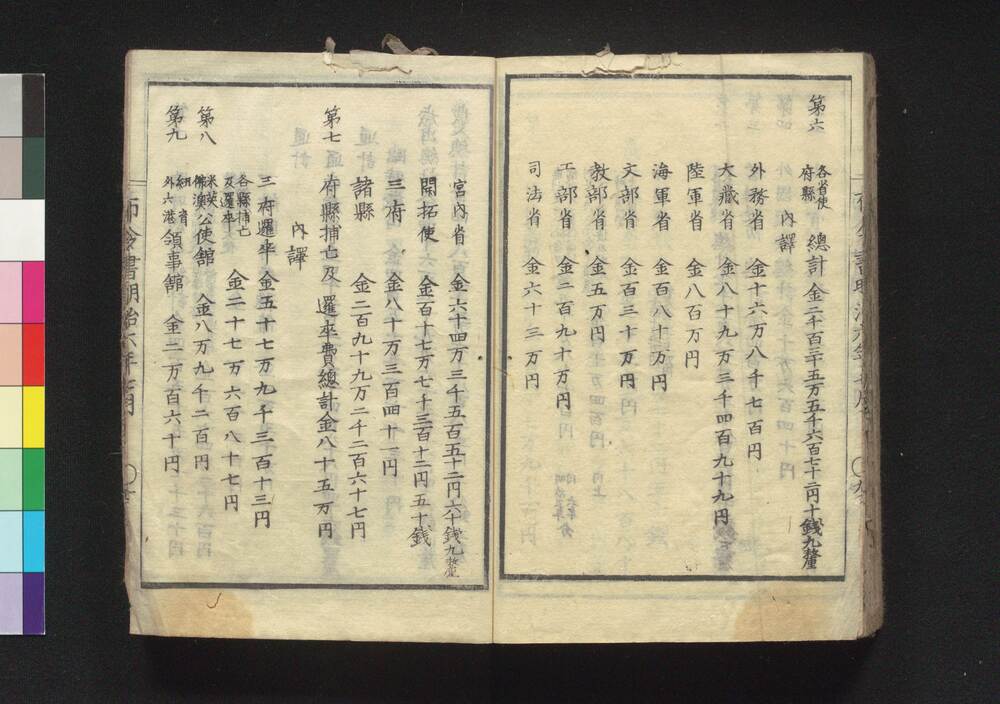 第六 各省使府縣 總計 金二千百三十五万五千六百七十二円十錢九釐
內譯
外務省 金十六万八千七百円
大藏省 金八十九万三千四百九十九円
陸軍省 金八百万円
海軍省 金百八十万円
文部省 金百三十万円
教部省 金五万円
工部省 金二百九十万円
司法省 金六十三万円
宮內省 金六十四万三千五百五十二円六十錢九釐
開拓使 金百十七万七千三百十二円五十錢
三府 金八十万三百四十一円
諸縣 金二百九十九万二千二百六十七円
第七 府縣捕亡及邏卒費總計金八十五万円
內譯
三府邏卒 金五十七万九千三百十三円
各縣捕亡及邏卒 金二十七万六百八十七円
第八 米英佛澳公使舘 金八万九千二百円
第九 紐育外六港領事舘 金二万百六十円
布令書明治六年七月